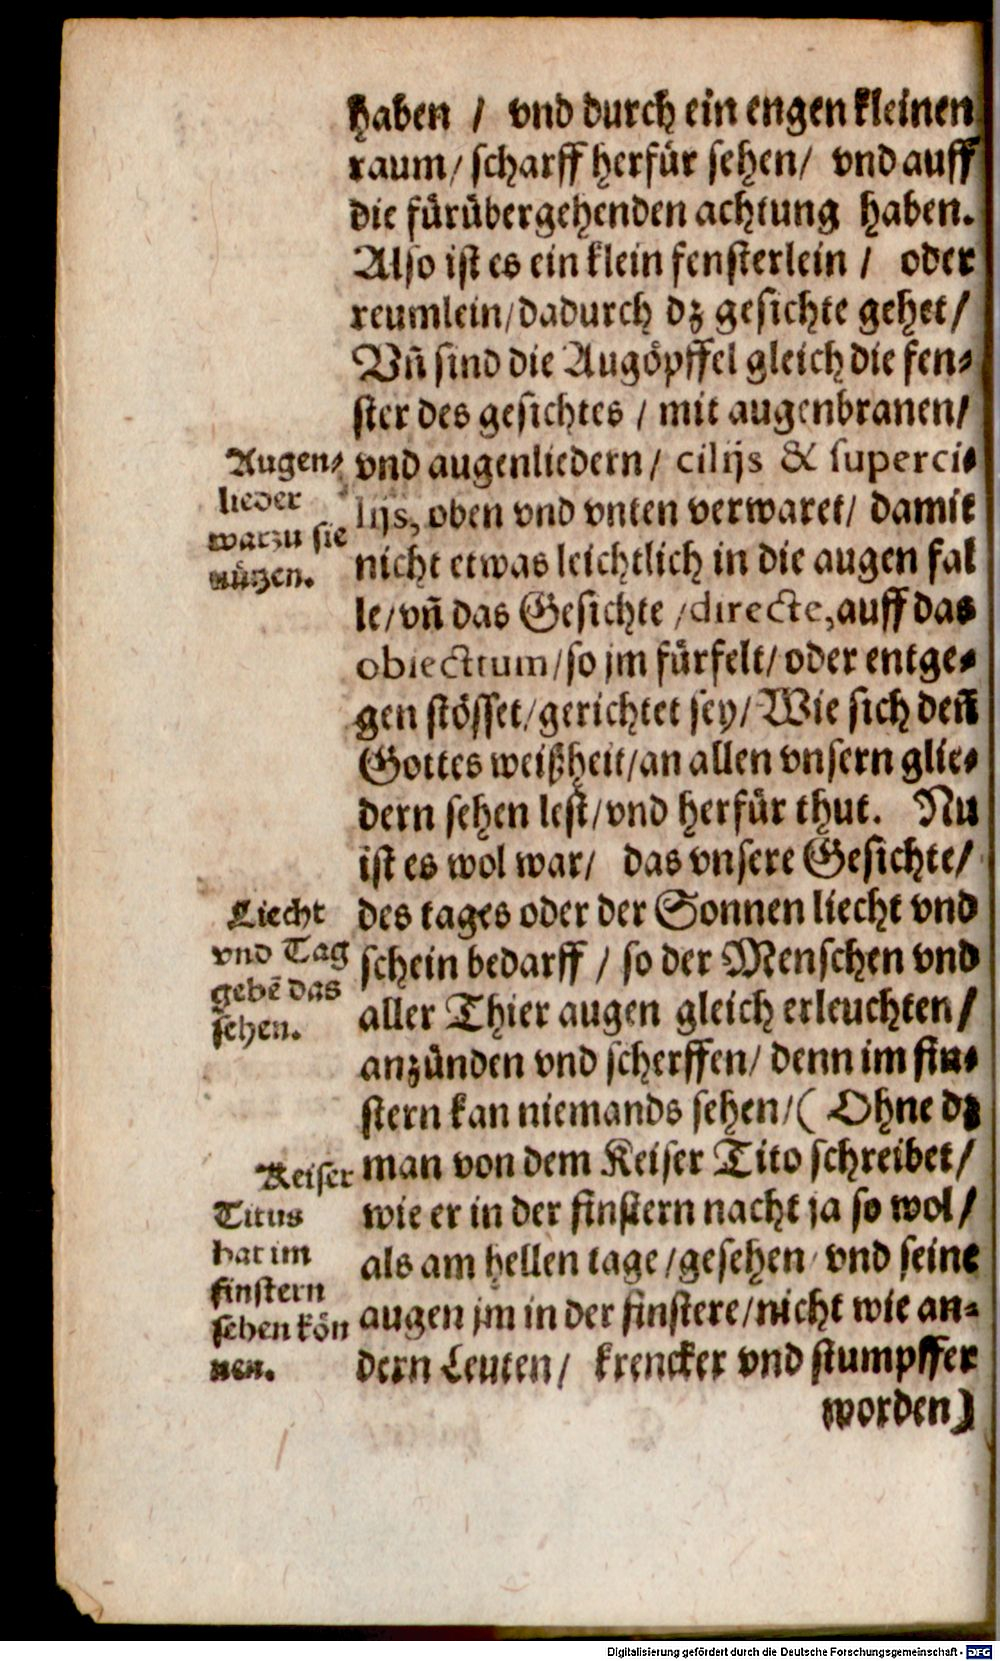 haben / vnd durch ein engen kleinen
raum/ scharff herfür sehen/ vnd auff
die fürübergehenden achtung haben.
Also ist es ein klein fensterlein / oder
reumlein/dadurch dz gesichte gehet/
Vñ sind die Augöpffel gleich die fen-
ster des gesichtes / mit augenbranen/
vnd augenliedern/ cilijs & superci-
lijs, oben vnd vnten verwaret/ damit
nicht etwas leichtlich in die augen fal
le/vñ das Gesichte /directe,auff das
obiectum/so jm fürfelt/ oder entge-
gen stösset/gerichtet sey/ Wie sich deñ
Gottes weißheit/an allen vnsern glie-
dern sehen lest/vnd herfür thut. Nu
ist es wol war/ das vnsere Gesichte/
des tages oder der Sonnen liecht vnd
schein bedarff / so der Menschen vnd
aller Thier augen gleich erleuchten/
anzünden vnd scherffen/ denn im fin-
stern kan niemands sehen/( Ohne dz
man von dem Keiser Tito schreibet/
wie er in der finstern nacht ja so wol/
als am hellen tage /gesehen/ vnd seine
augen jm in der finstere/nicht wie an-
dern Leuten/ krencker vnd stumpffer
worden)
Augen-
lieder
warzu sie
nützen.
Liecht
vnd Tag
gebẽ das
sehen.
Keiser
Titus
hat im
finstern
sehen kön
nen.
Digitalisierung gefördert durch die Deutsche Forschungsgemeinschaft - DFG